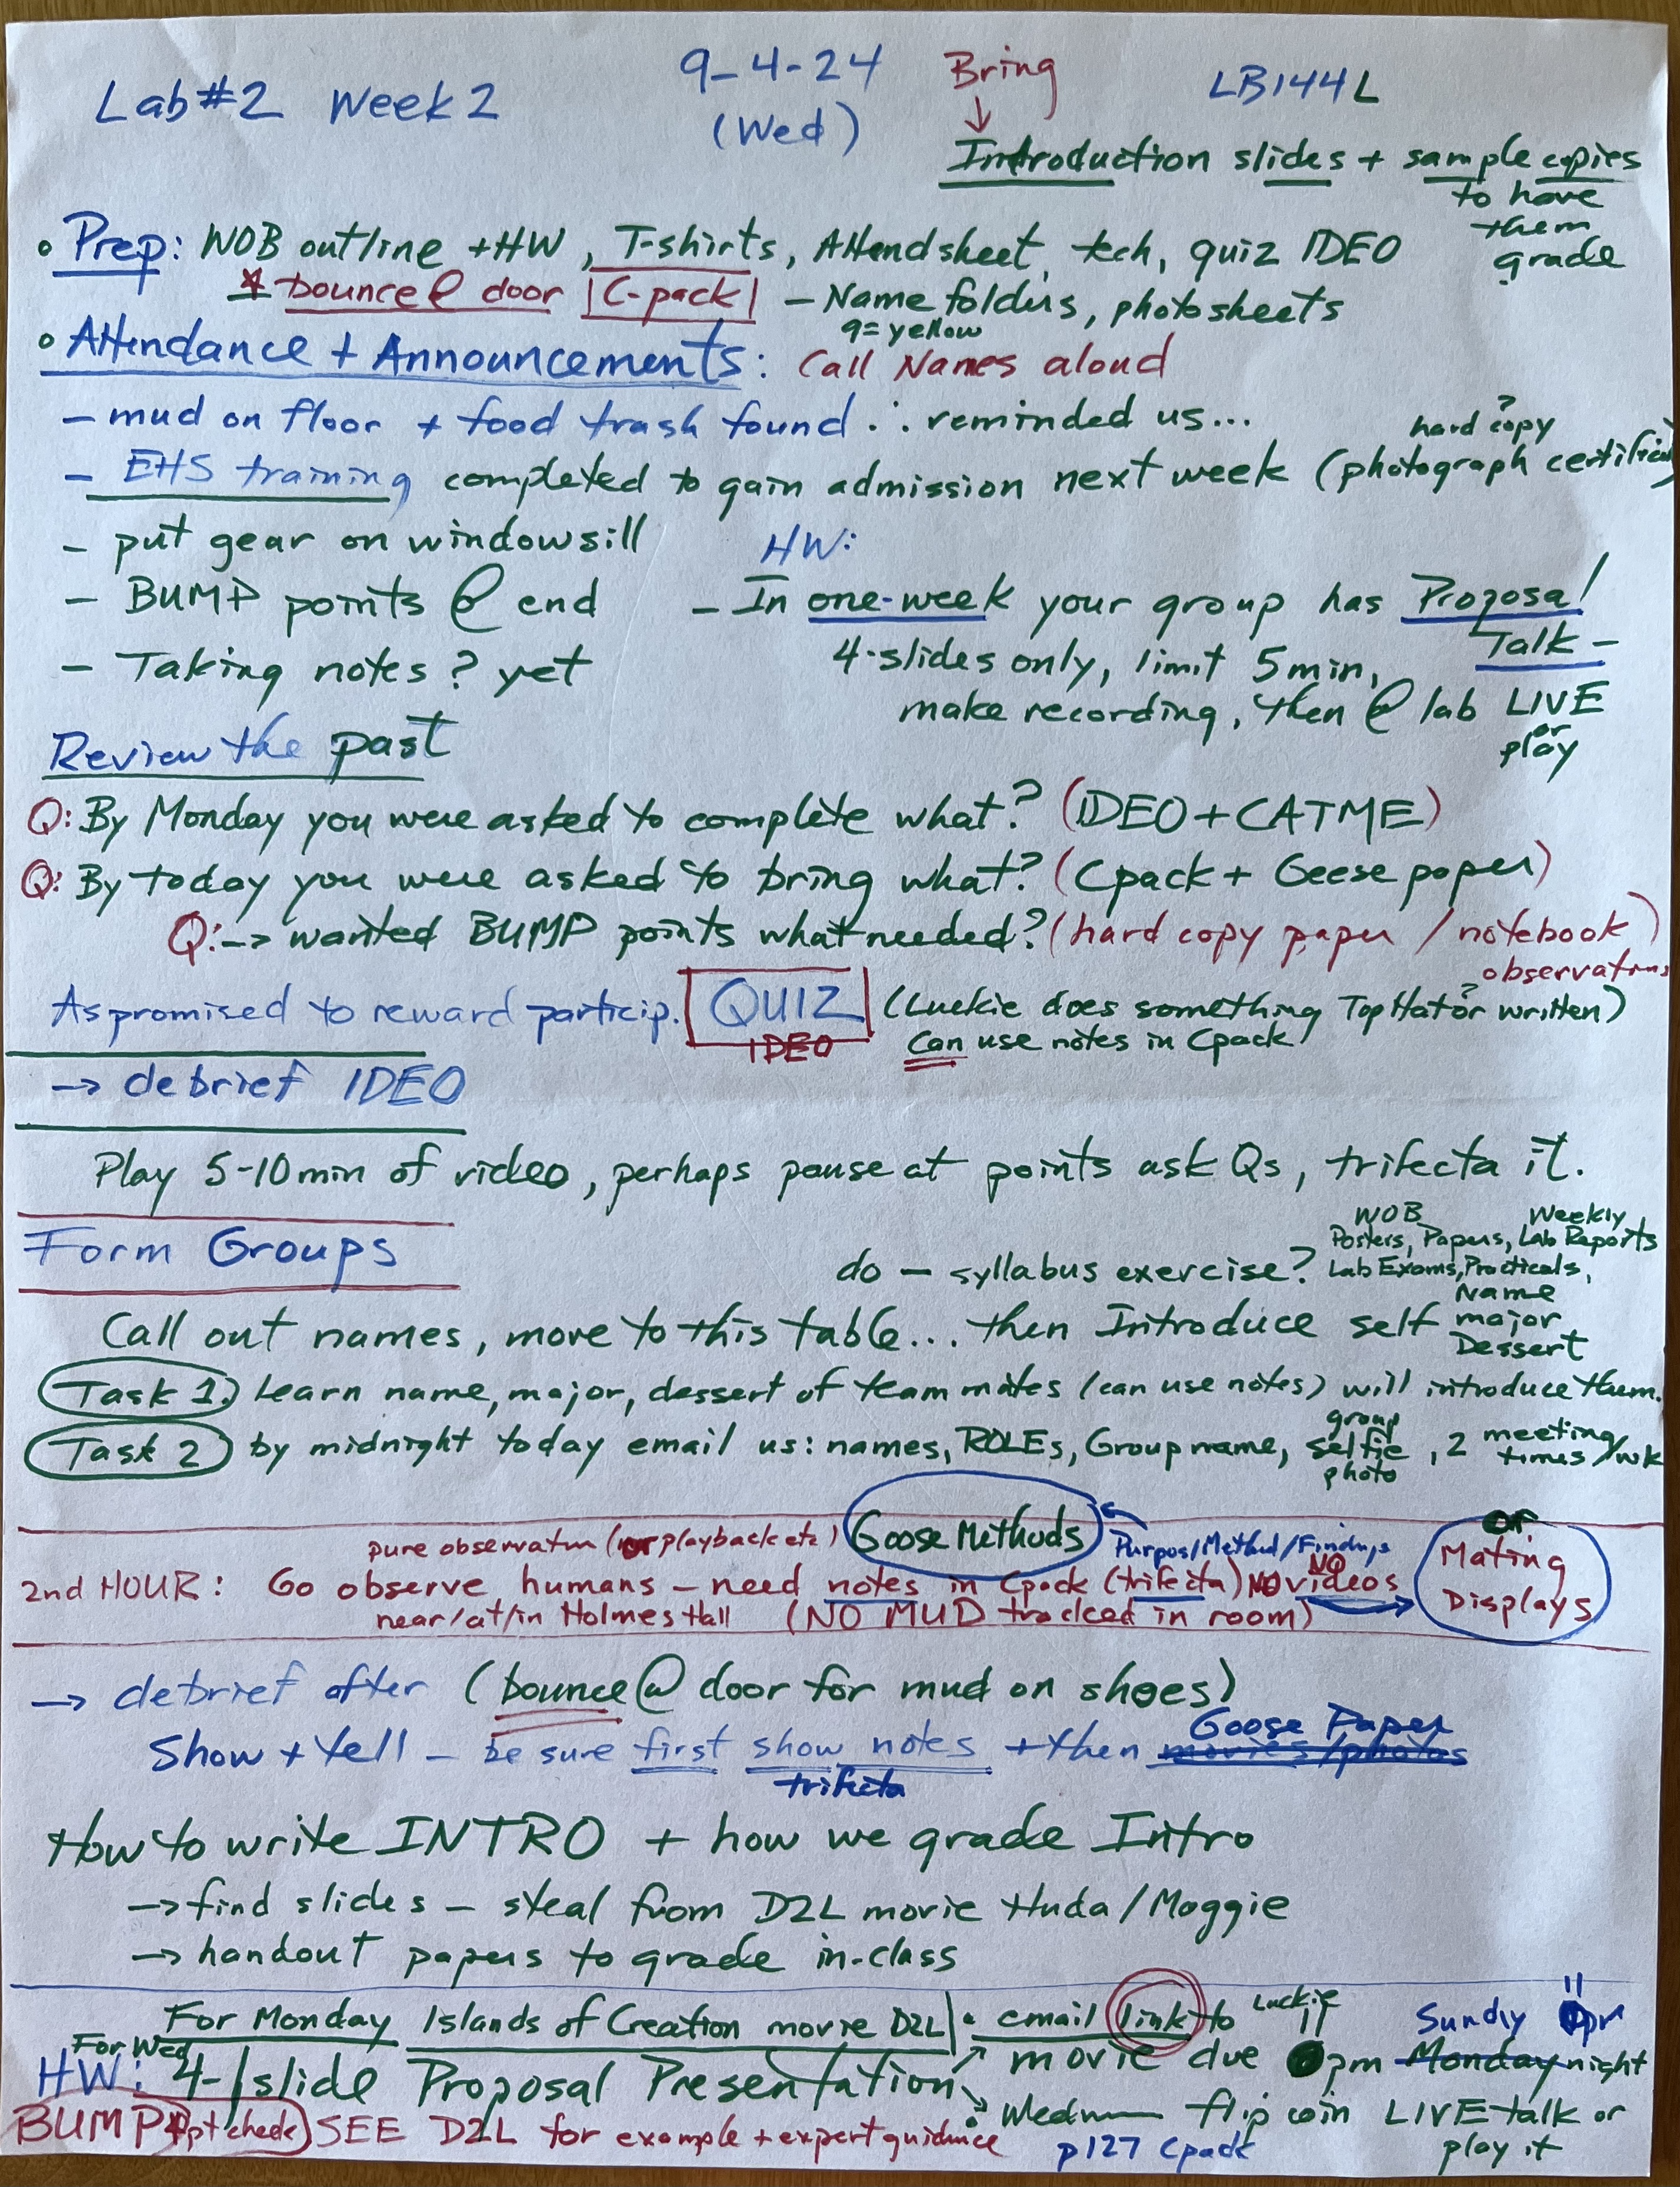 Lab #2 Week 2 9-4-24 Bring LB144L
(Wed) ↓
Introduction slides + sample copies
to have
them
grade
• Prep: WOB outline + HW, T-shirts, Attendsheet, tech, quiz IDEO
* bounce @ door C-pack - Name folders, photosheets
9 = yellow
• Attendance + Announcements: Call Names aloud
- mud on floor + food trash found ∴ reminded us...
hard copy?
- EHS training completed to gain admission next week (photograph
- put gear on windowsill
HW:
- BUMP points @ end
- In one-week your group has Proposal
Talk -
- Taking notes? yet
4-slides only, limit 5 min,
make recording, then @ lab LIVE
or
play
Review the past
Q: By Monday you were asked to complete what? (IDEO + CATME)
Q: By today you were asked to bring what? (Cpack + Geese paper)
Q: → wanted BUMP points what needed? (hard copy paper / notebook)
observations
As promised to reward particip. QUIZ (Luckie does something TopHat or written?)
IDEO Can use notes in Cpack
→ debrief IDEO
Play 5-10 min of video, perhaps pause at points ask Qs, trifecta it.
Form Groups
do - syllabus exercise?
WOB Weekly
Posters, Papers, Lab Reports
Lab Exams, Practicals,
Call out names, move to this table... then Introduce self
Name
major
Dessert
Task 1.) Learn name, major, dessert of team mates (can use notes) will introduce them.
Task 2 by midnight today email us: names, ROLEs, Group name, group selfie photo, 2 meeting times/wk
pure observatn (or playback etc) Goose Methods ← Purpos/Method/Findings or
2nd HOUR: Go observe humans - need notes in Cpack (trifecta) NO videos → Mating Displays
NO
near/at/in Holmes Hall (NO MUD tracked in room)
→ debrief after (bounce @ door for mud on shoes)
Show + tell - be sure first show notes + then movies/photos Goose Paper
trifecta
How to write INTRO + how we grade Intro
→ find slides - steal from D2L movie Huda/Maggie
→ handout papers to grade in-class
For Monday Islands of Creation movie D2L • email link to Luckie
For Wed
HW: 4-slide Proposal Presentation
movie due 11 pm Monday night
Sunday
BUMP ppt check SEE D2L for example + expert guidance
• flip coin LIVE talk or
play it
p127 Cpack